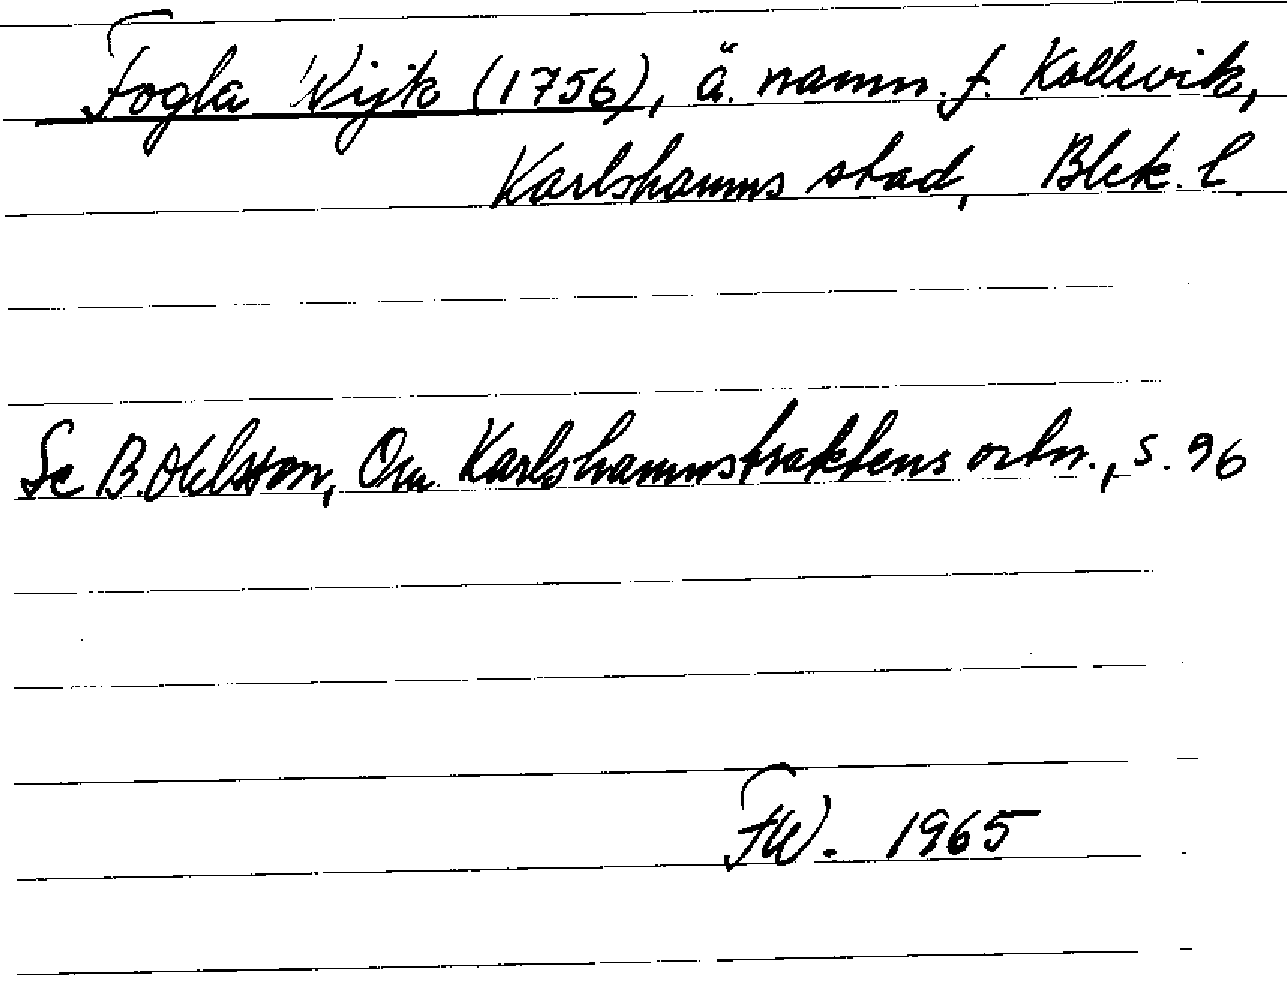 Fogla Wijk (1756), ä. namn. f. Kollevik,
Karlshamns stad, Blek. l.
Se B. Ohlsson, Om Karlshamnstraktens ortn., s. 96
FW. 1965